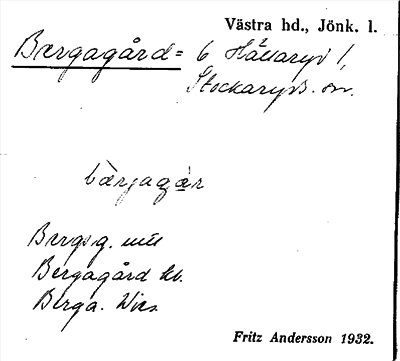 Västra hd., Jönk. l.
Bærgagård = 6 Hållaryd 1,
Stockaryds sn.
bærjagar
Bergsg. mu
Bergagård kb.
Berga. Wies.
Fritz Andersson 1932.